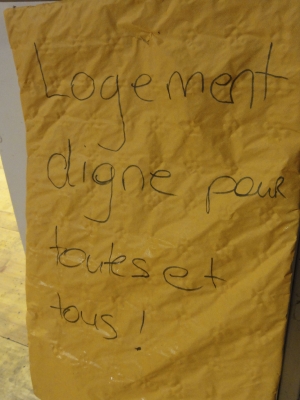 Logement
digne pour
toutes et
tous !